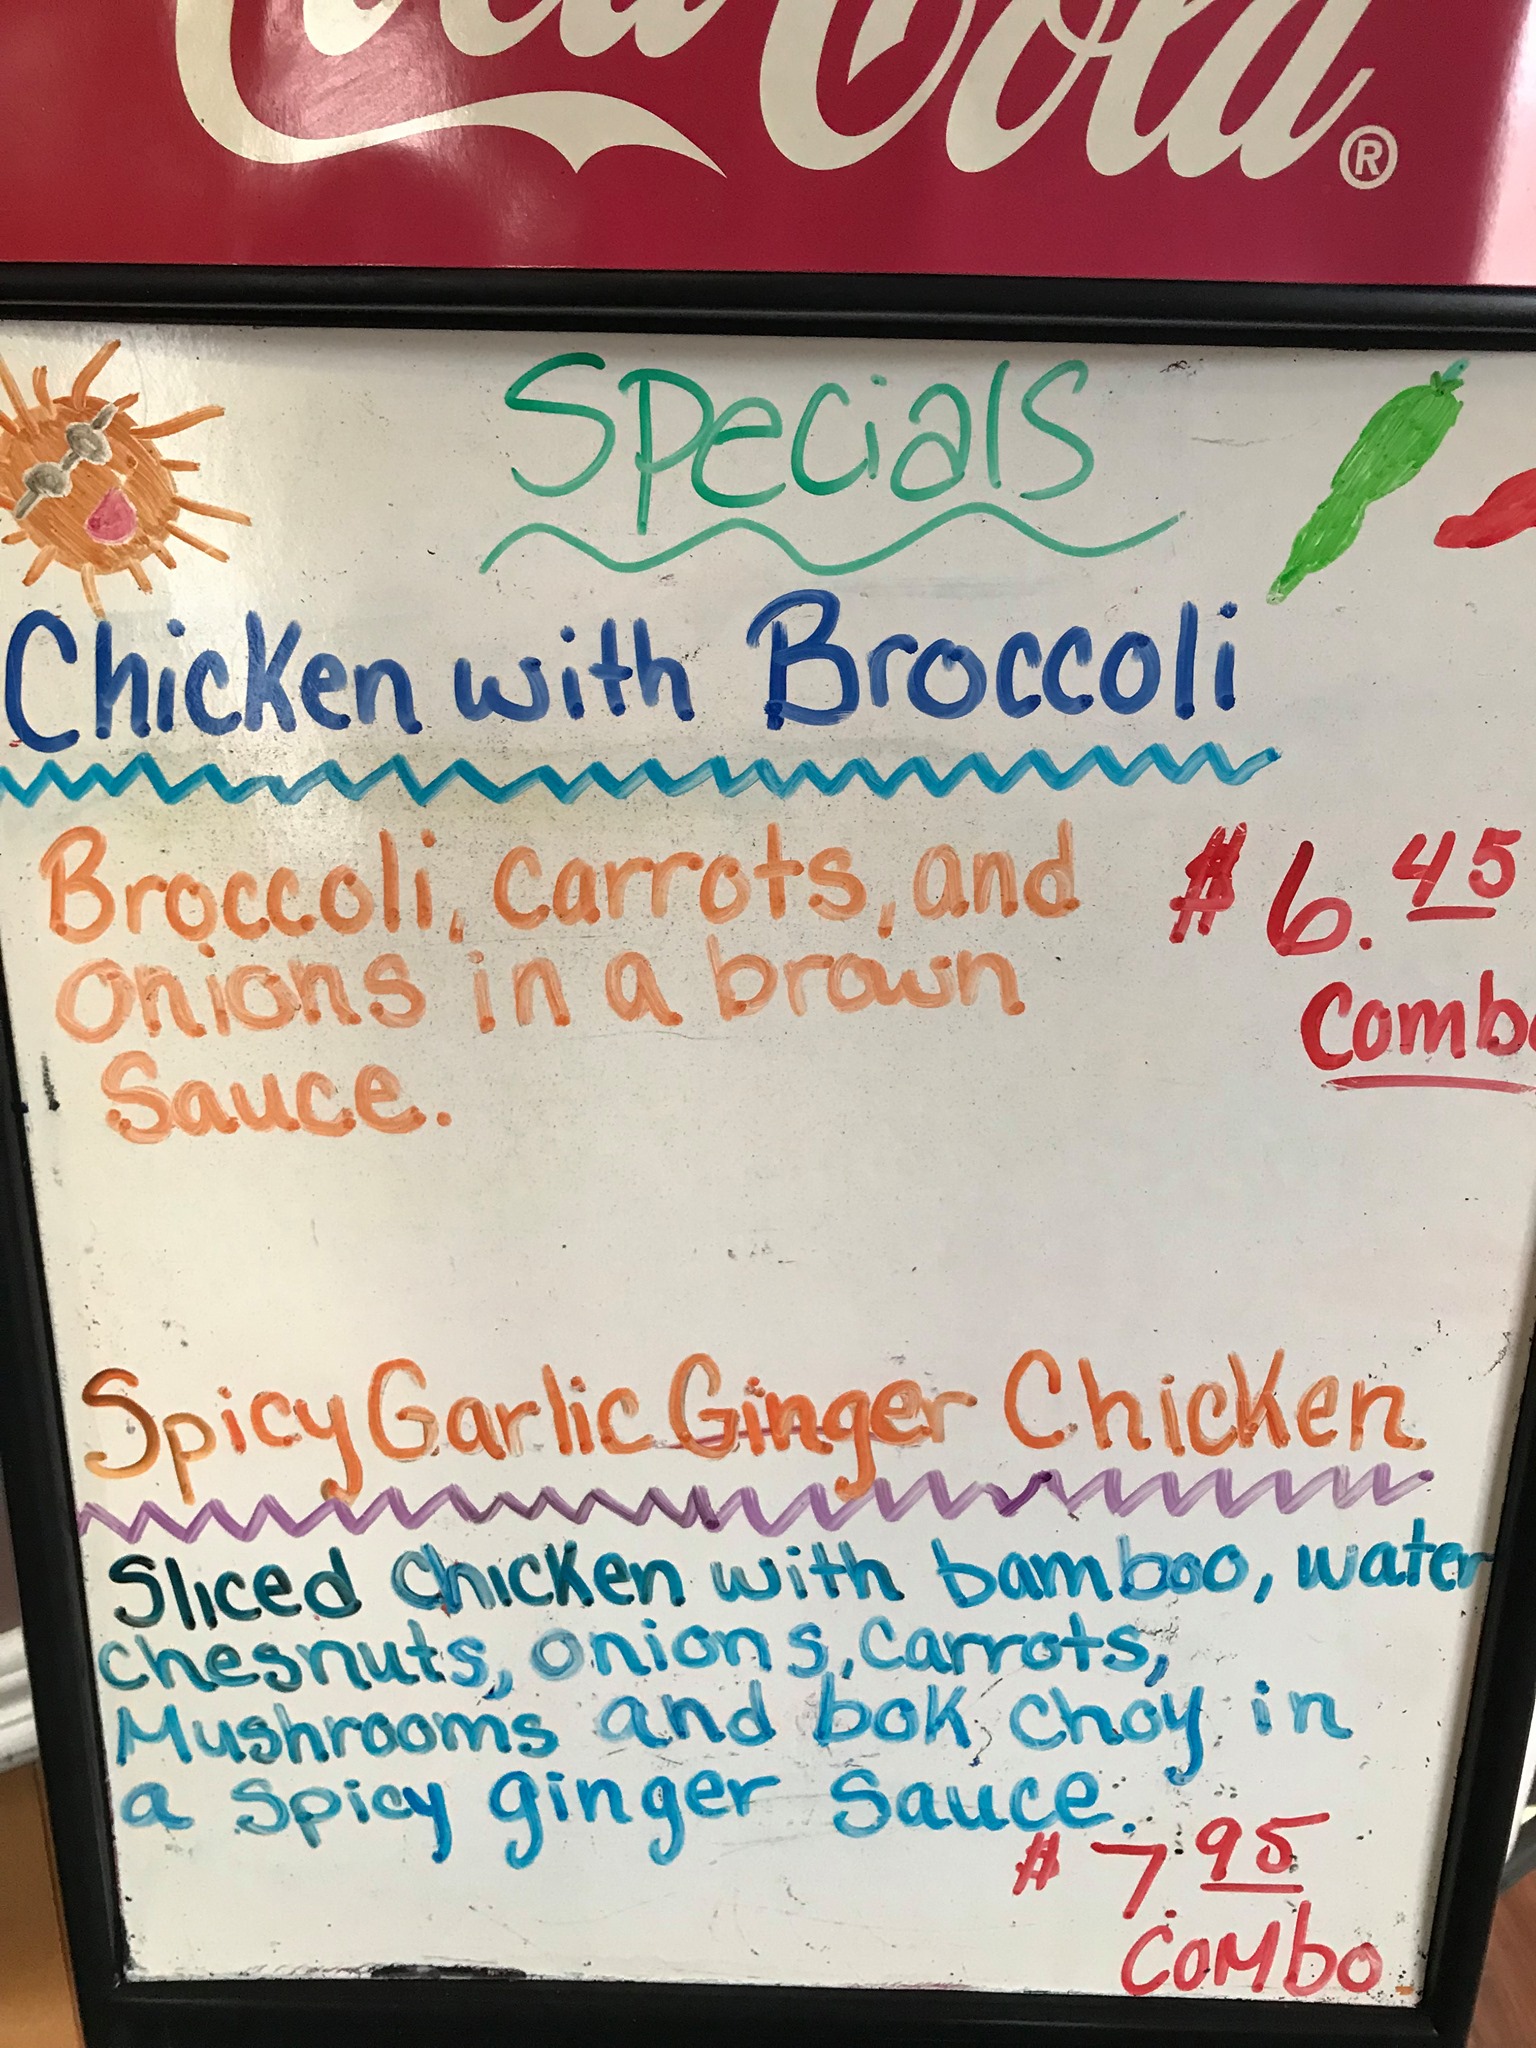 Coca-Cola®
Specials
Chicken with Broccoli
Broccoli, carrots, and
onions in a brown
Sauce.
$6.45
Combo
Spicy Garlic Ginger Chicken
Sliced chicken with bamboo, water
chesnuts, onions, carrots,
Mushrooms and bok choy in
a spicy ginger sauce.
$7.95
Combo